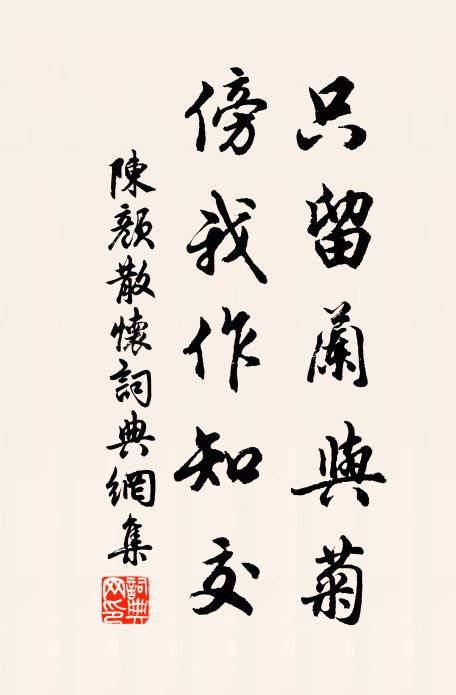 只留蘭與菊
傍我作知交
陳顏散懷詞典網集
詞典網印